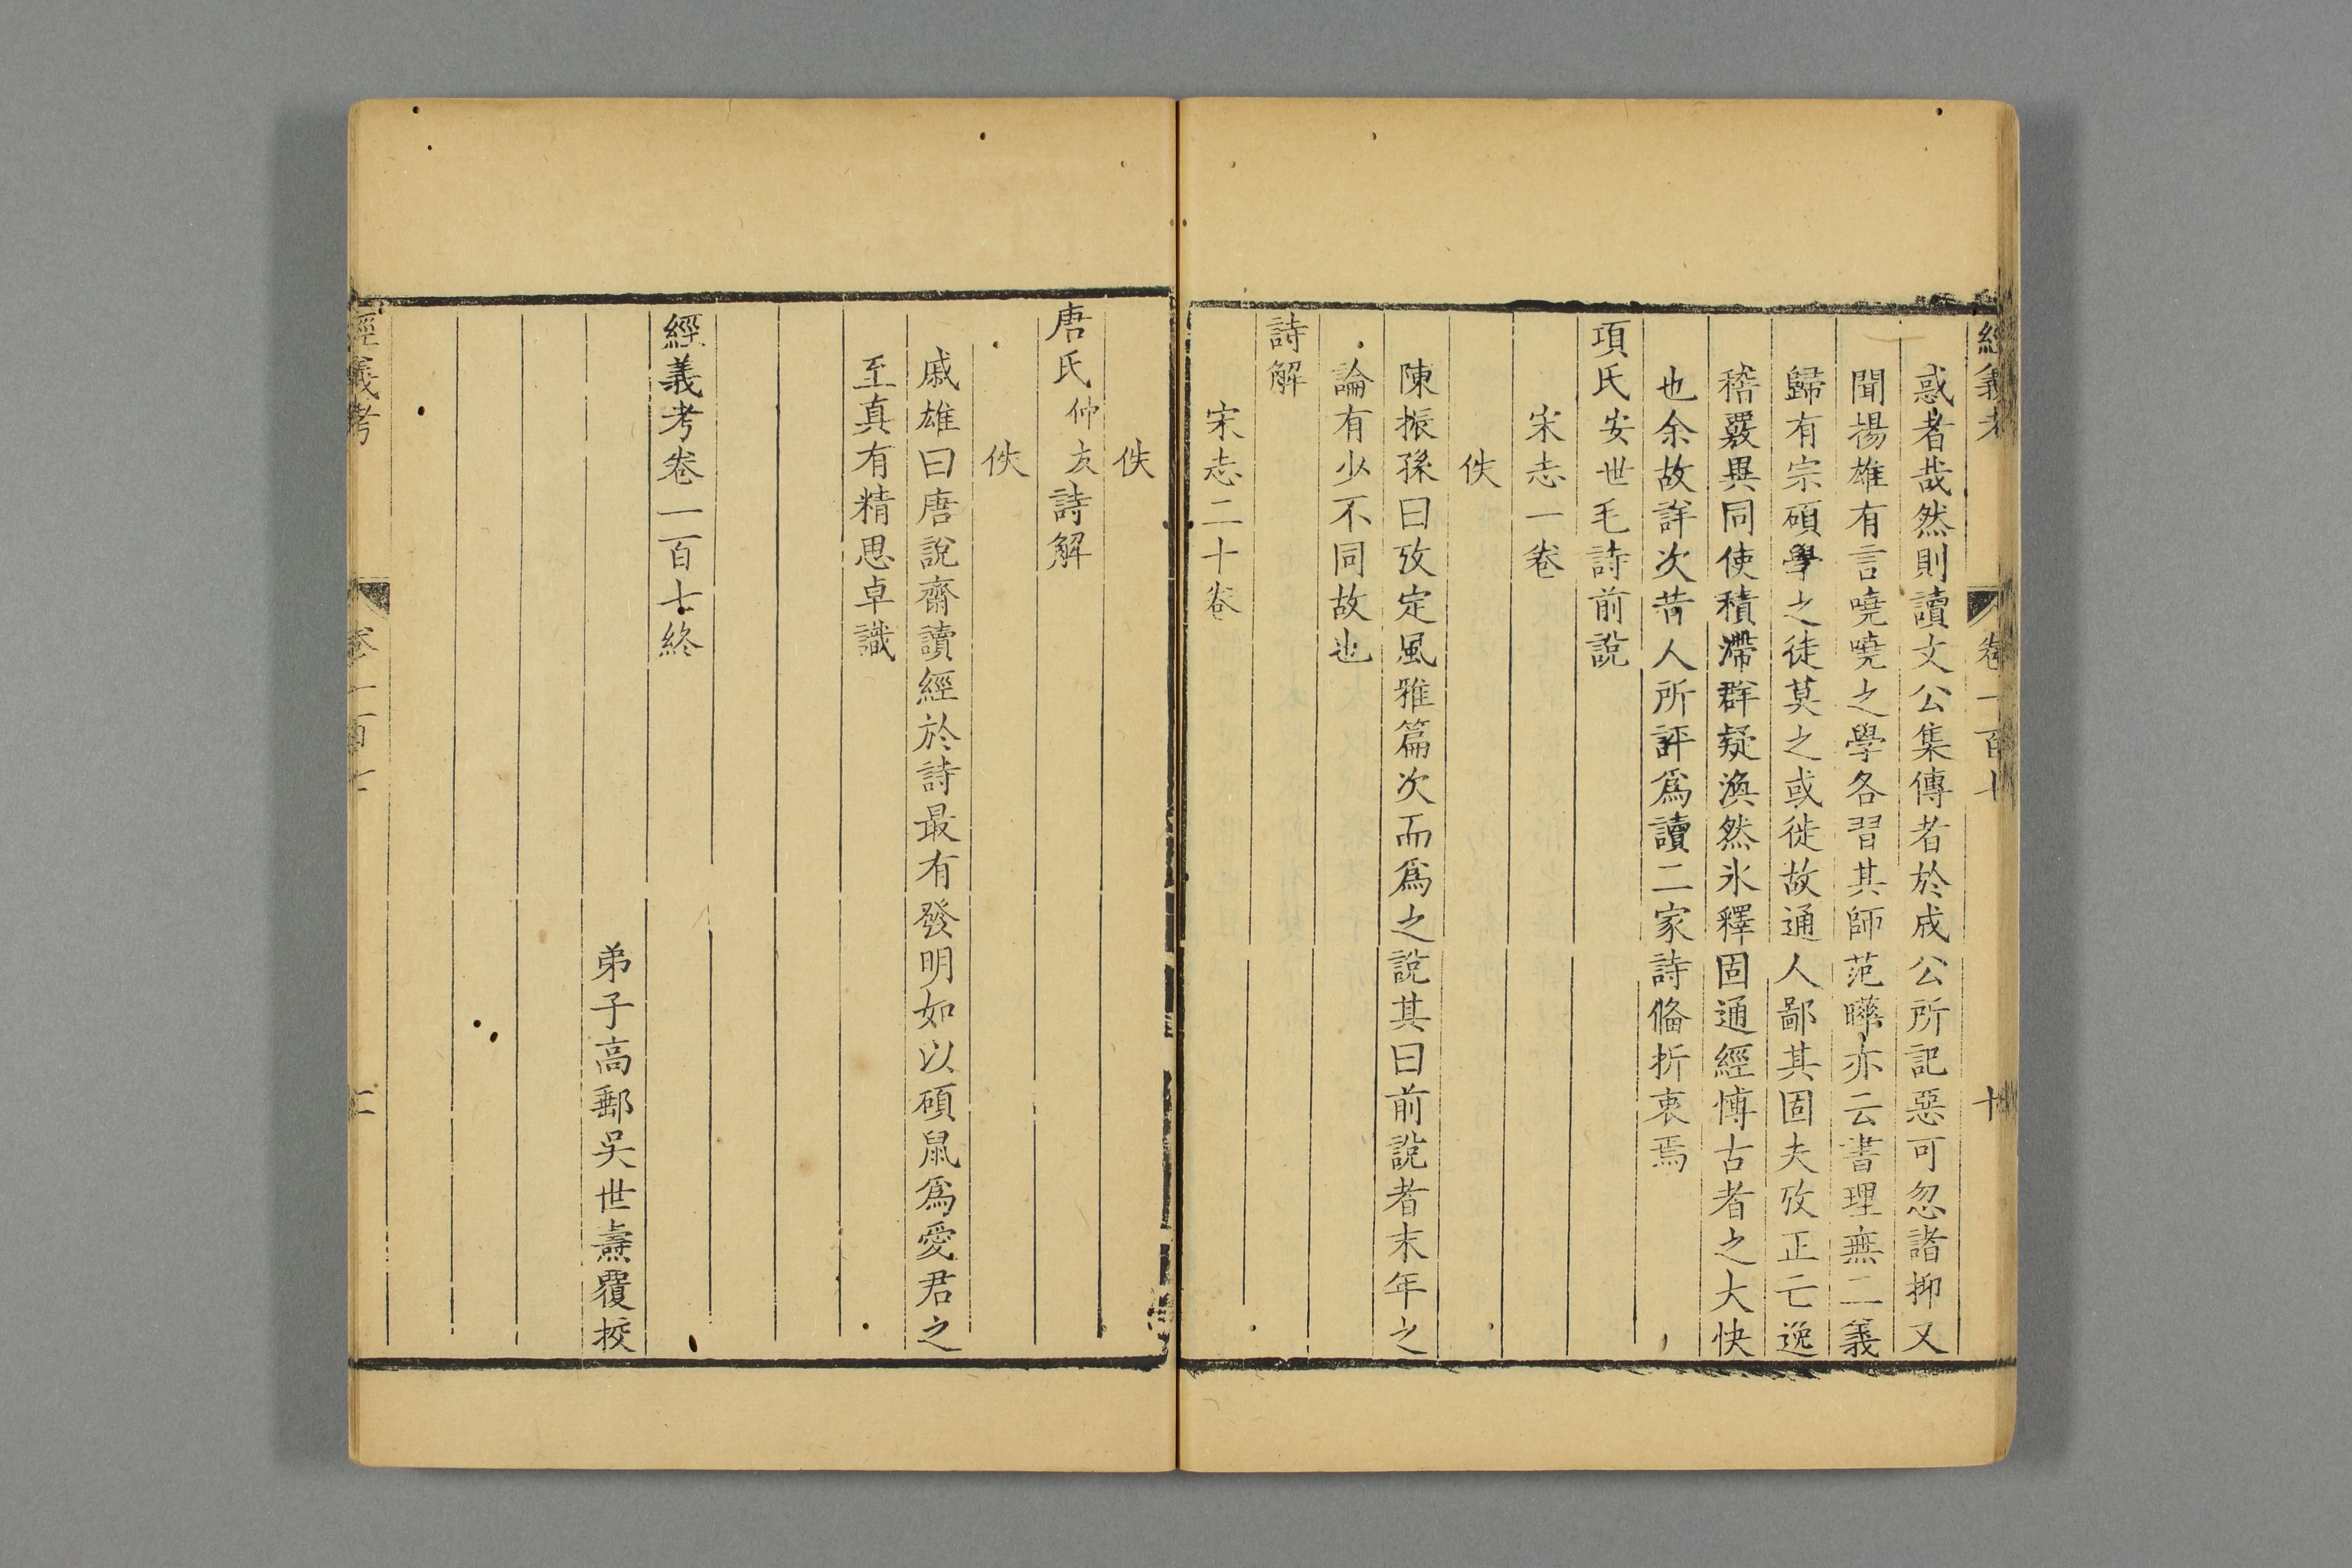 經義考 卷一百七 十
惑者哉然則讀文公集傳者於成公所記惡可忽諸抑又
聞揚雄有言嘵嘵之學各習其師范曄亦云書理無二義
歸有宗碩學之徒莫之或徙故通人鄙其固夫攷正亡逸
稽覈異同使積滯群疑渙然氷釋固通經博古者之大快
也余故詳次昔人所評爲讀二家詩偹折衷焉
項氏安世毛詩前說
宋志一卷
佚
陳振孫曰攷定風雅篇次而爲之說其曰前說者末年之
論有少不同故也
詩解
宋志二十卷
佚
唐氏仲友詩解
佚
戚雄曰唐說齋讀經於詩最有發明如以碩鼠爲愛君之
至真有精思卓識
經義考卷一百七終
弟子高郵吳世燾覆挍
經義考 卷一百七